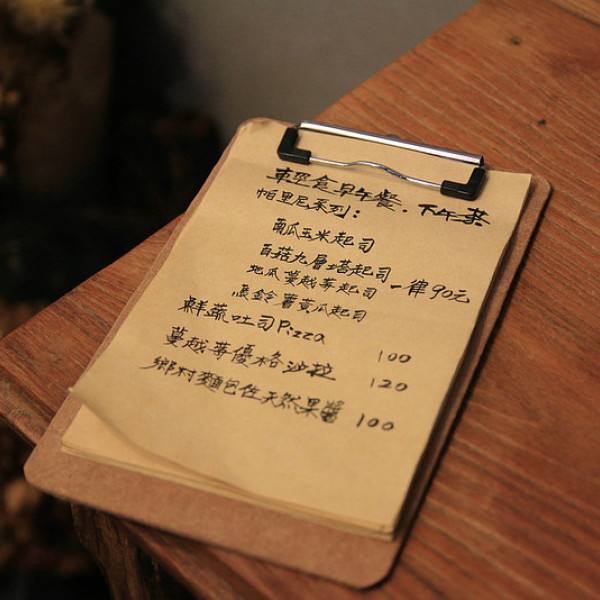 輕食早午餐.下午茶
帕里尼系列:
南瓜玉米起司
百菇九層塔起司
地瓜蔓越莓起司 一律90元
馬鈴薯黃瓜起司
鮮蔬吐司Pizza 100
蔓越莓優格沙拉 120
鄉村麵包佐天然果醬 100